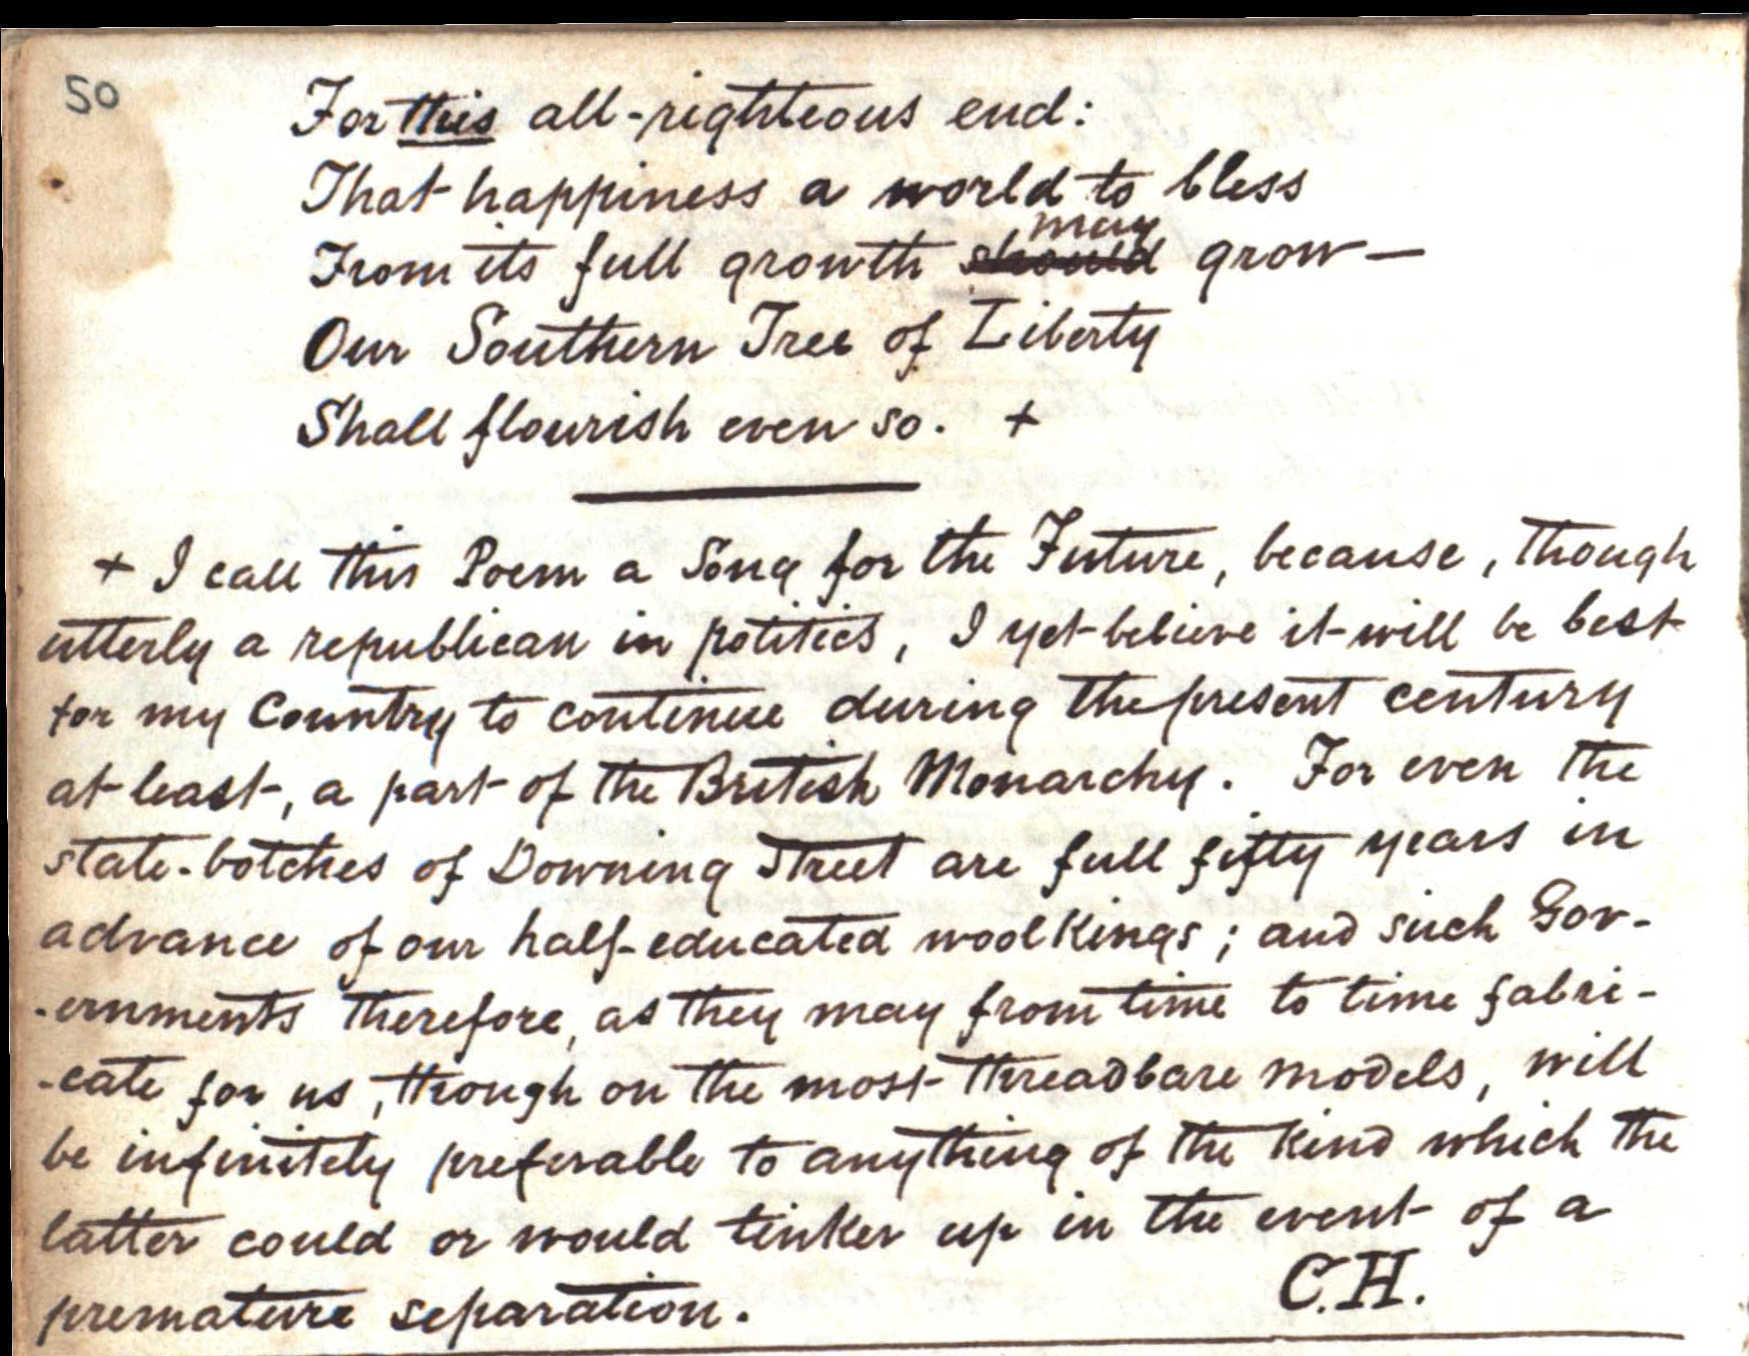 50
For this all-righteous end:
That happiness a world to bless
may
From its full growth should grow—
Our Southern Tree of Liberty
Shall flourish even so. +
+ I call this Poem a Song for the Future, because, though
utterly a republican in politics, I yet believe it will be best
for my Country to continue during the present century
at least, a part of the British Monarchy. For even the
state-botches of Downing Street are full fifty years in
advance of our half-educated wool Kings; and such Gov-
-ernments therefore, as they may from time to time fabri-
-cate for us, though on the most threadbare models, will
be infinitely preferable to anything of the kind which the
latter could or would tinker up in the event of a
premature separation.
C.H.